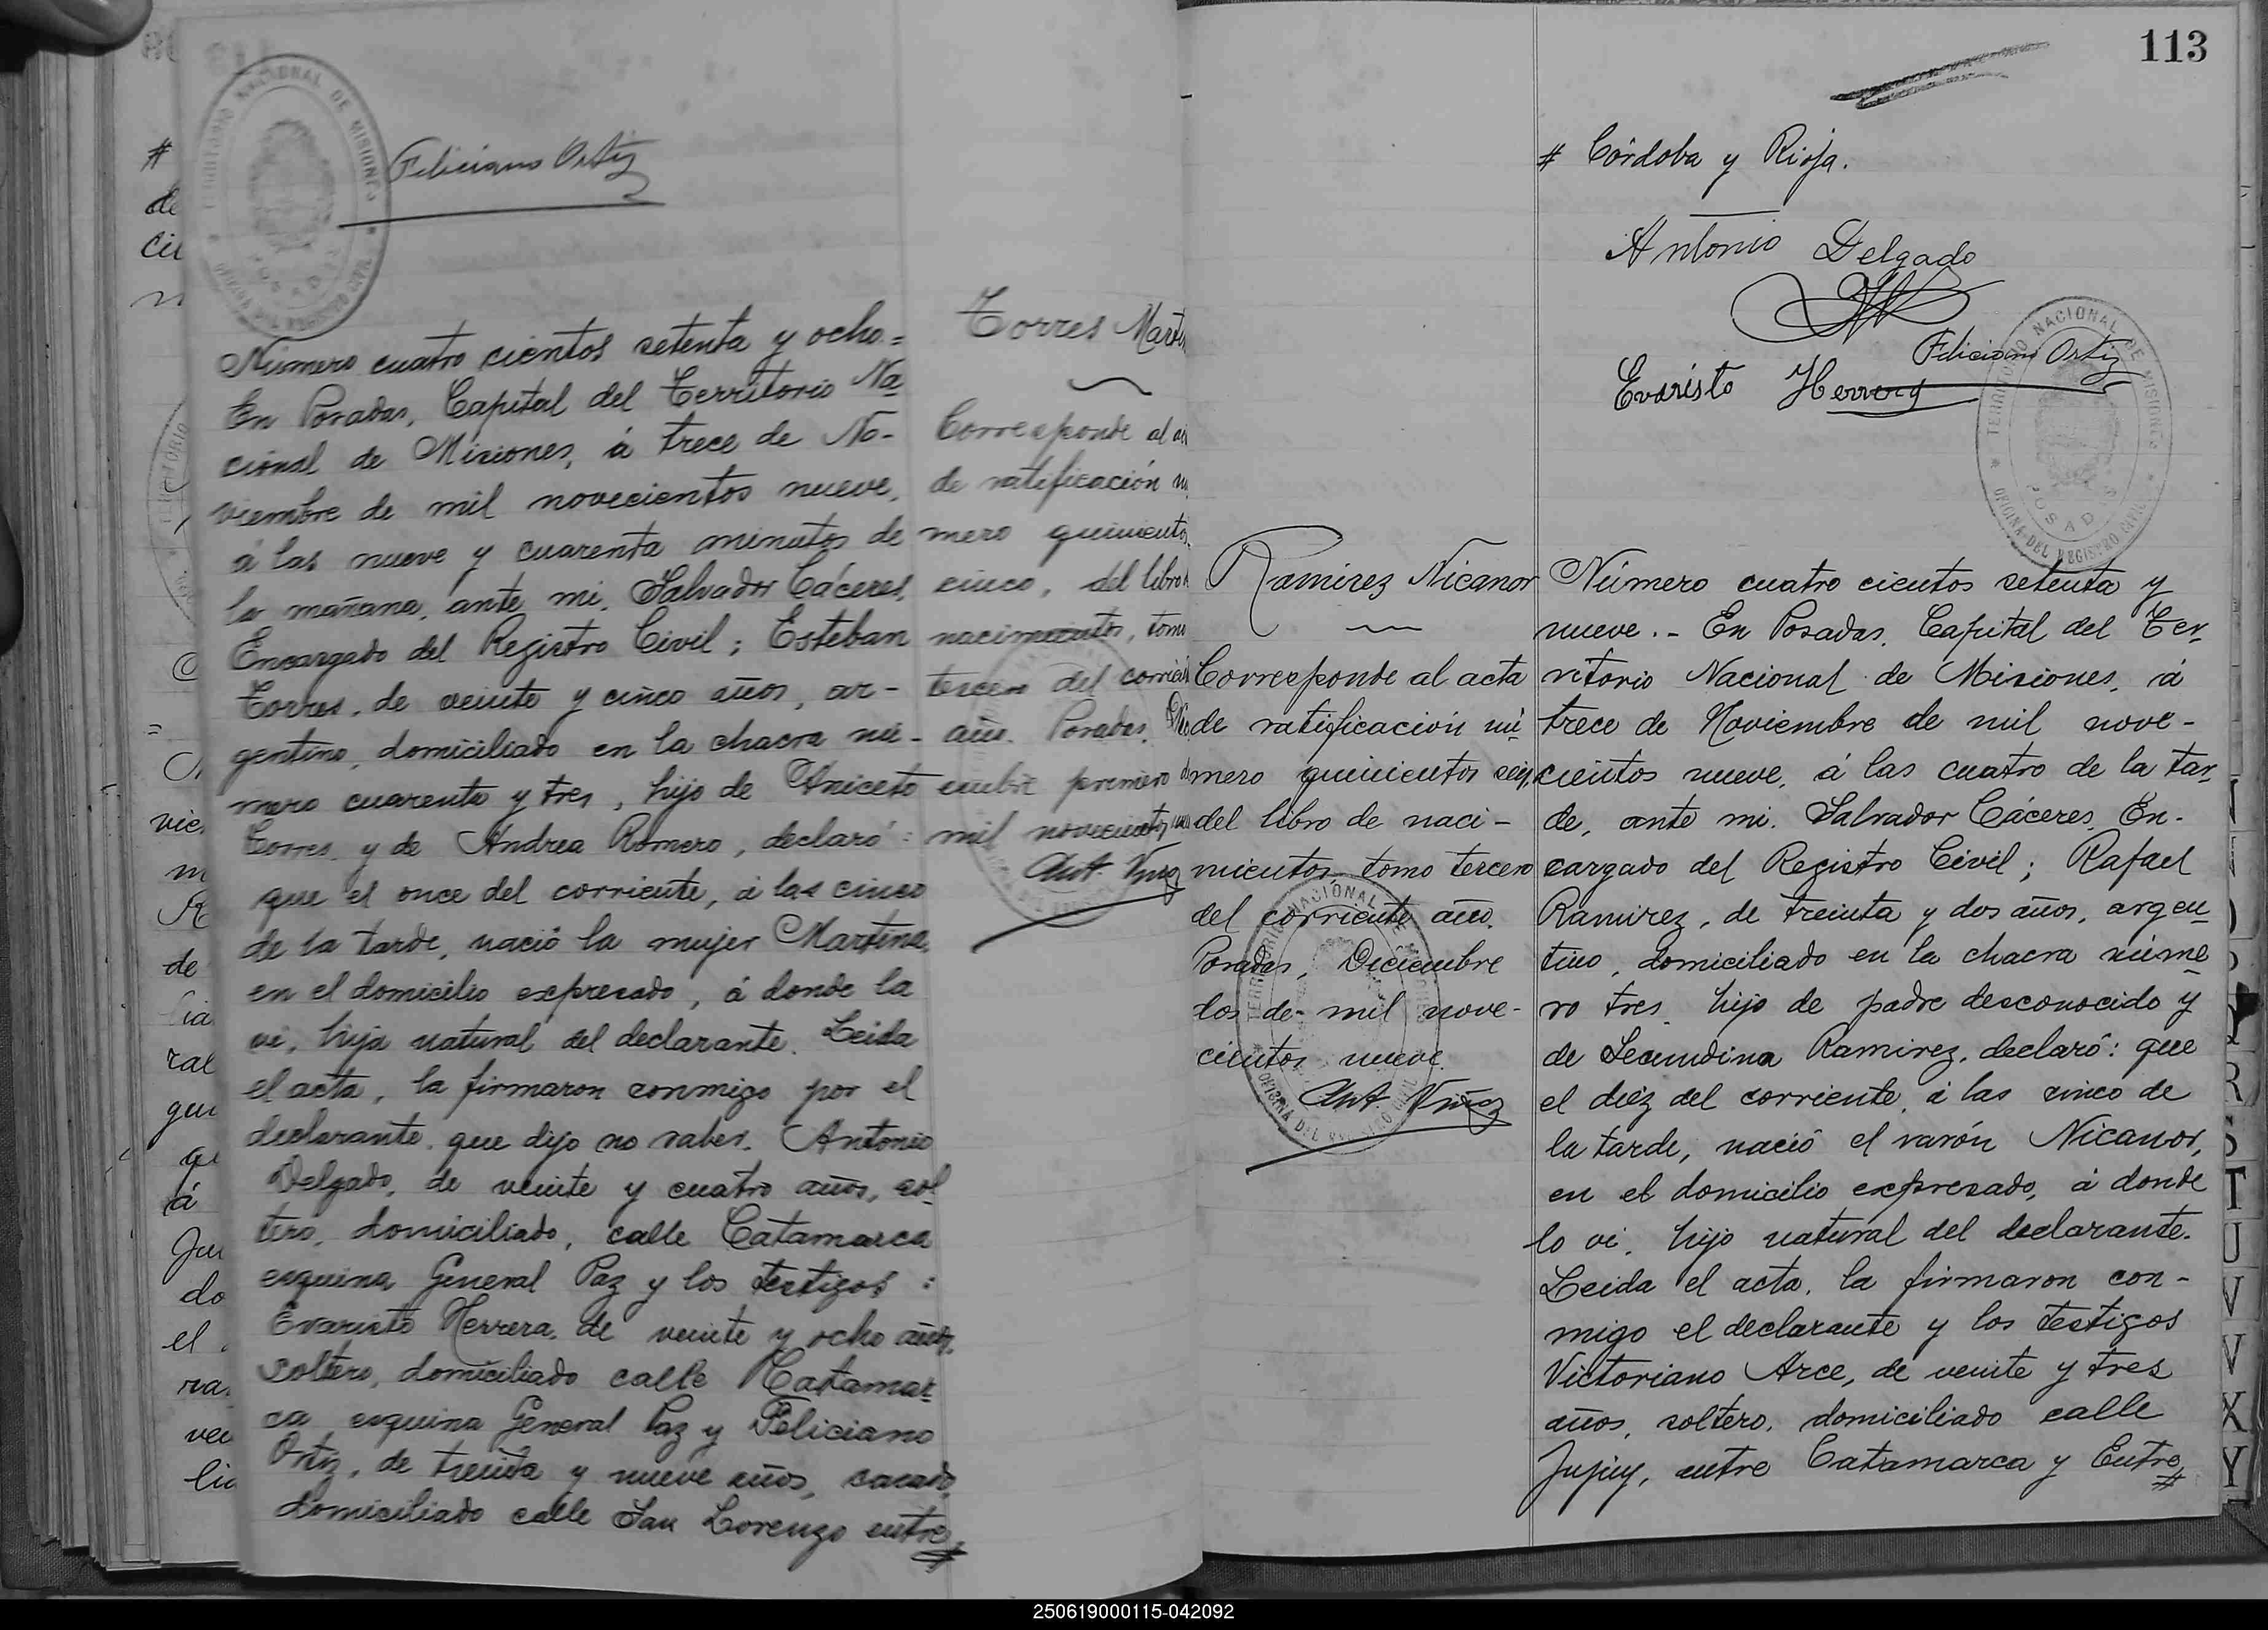 Feliciano Ortiz
Número cuatro cientos setenta y ocho.=
En Posadas, Capital del Territorio Na
cional de Misiones, á trece de No-
viembre de mil novecientos nueve,
á las nueve y cuarenta minutos de
la mañana, ante mi, Salvador Cáceres,
Encargado del Registro Civil; Esteban
Torres, de veinte y cinco años, ar-
gentino, domiciliado en la chacra nú-
mero cuarenta y tres, hijo de Aniceto
Torres y de Andrea Romero, declaró:
que el once del corriente, á las cinco
de la tarde, nació la mujer Martina,
en el domicilio expresado, á donde la
vi, hija natural del declarante. Leida
el acta, la firmaron conmigo por el
declarante, que dijo no saber, Antonio
Delgado, de veinte y cuatro años, sol
tero, domiciliado, calle Catamarca
esquina General Paz y los testigos:
Evaristo Herrera, de veinte y ocho años,
soltero, domiciliado calle Catamar
ca esquina General Paz y Feliciano
Ortiz, de treinta y nueve años, casado,
domiciliado calle San Lorenzo entre #
Torres
Corresponde al
de ratificación
mero quinientos
cinco, del libro
nacimientos, tomo
tercero del
año. Posadas,
embre primero
mil novecientos
113
# Córdoba y Rioja.
Antonio Delgado
Feliciano Ortiz
Evaristo Herrera
TERRITORIO NACIONAL DE MISIONES
POSADAS
OFICINA DEL REGISTRO CIVIL
Ramirez Nicanor
Corresponde al acta
de ratificación nú
mero quinientos seis,
del libro de naci-
mientos, tomo tercero
del corriente año.
Posadas, Diciembre
dos de mil nove-
cientos nueve.
Número cuatro cientos setenta y
nueve.- En Posadas, Capital del Ter-
ritorio Nacional de Misiones, á
trece de Noviembre de mil nove-
cientos nueve, á las cuatro de la tar-
de, ante mi, Salvador Cáceres, En-
cargado del Registro Civil; Rafael
Ramirez, de treinta y dos años, argen
tino, domiciliado en la chacra núme
ro tres, hijo de padre desconocido y
de Secundina Ramirez, declaró: que
el diéz del corriente, á las cinco de
la tarde, nació el varón Nicanor,
en el domicilio expresado, á donde
lo vi, hijo natural del declarante.
Leida el acta, la firmaron con-
migo el declarante y los testigos
Victoriano Arce, de veinte y tres
años, soltero, domiciliado calle
Jujuy, entre Catamarca y Entre #
250619000115-042092